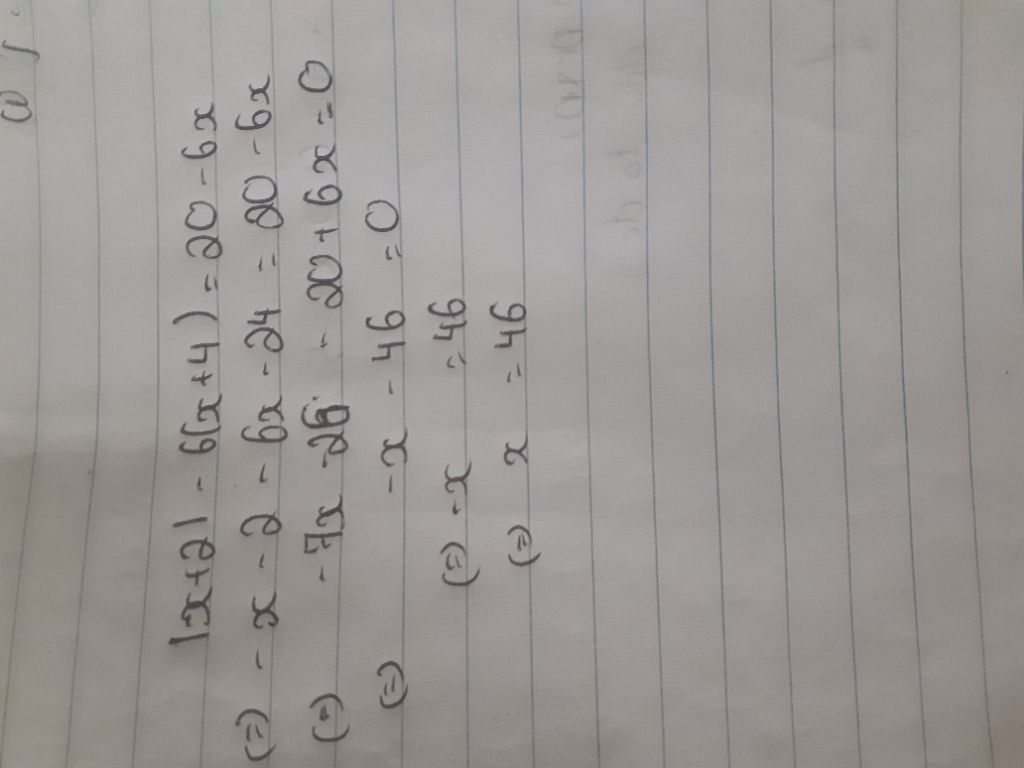 |x+2| - 6(x+4) = 20 - 6x
(=) - x - 2 - 6x - 24 = 20 - 6x
(=) - 7x - 26 - 20 + 6x = 0
(=) - x - 46 = 0
(=) - x = 46
(=) x = 46